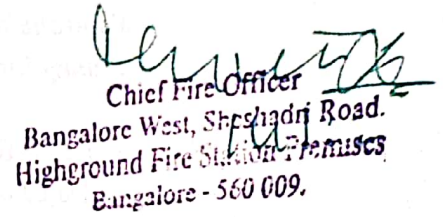 Chief Fire Officer
Bangalore West, Sheshadri Road.
Highground Fire Station Premises
Bangalore - 560 009.